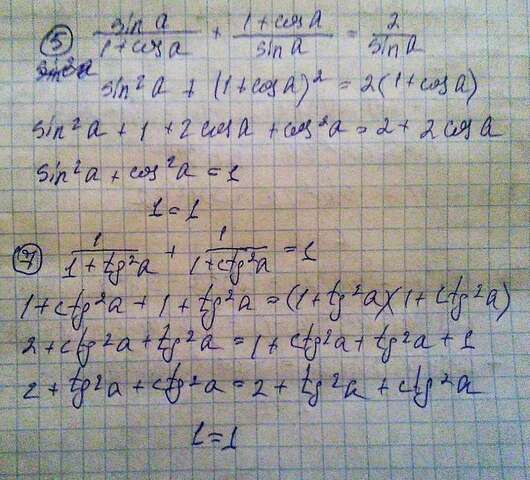 ⑤ sin a / 1+cos a + 1+cos a / sin a = 2 / sin a
sin²a + (1+cos a)² = 2(1+cos a)
sin²a + 1 + 2cos a + cos²a = 2 + 2cos a
sin²a + cos²a = 1
1 = 1
⑦ 1 / 1+tg²a + 1 / 1+ctg²a = 1
1+ctg²a + 1 + tg²a = (1+tg²a)(1+ctg²a)
2+ctg²a+tg²a = 1+ctg²a+tg²a+1
2+tg²a+ctg²a = 2+tg²a+ctg²a
1=1